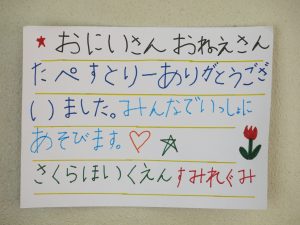 おにいさん おねえさん
たぺすとりーありがとうござ
いました。みんなでいっしょに
あそびます。
さくらほいくえん すみれぐみ